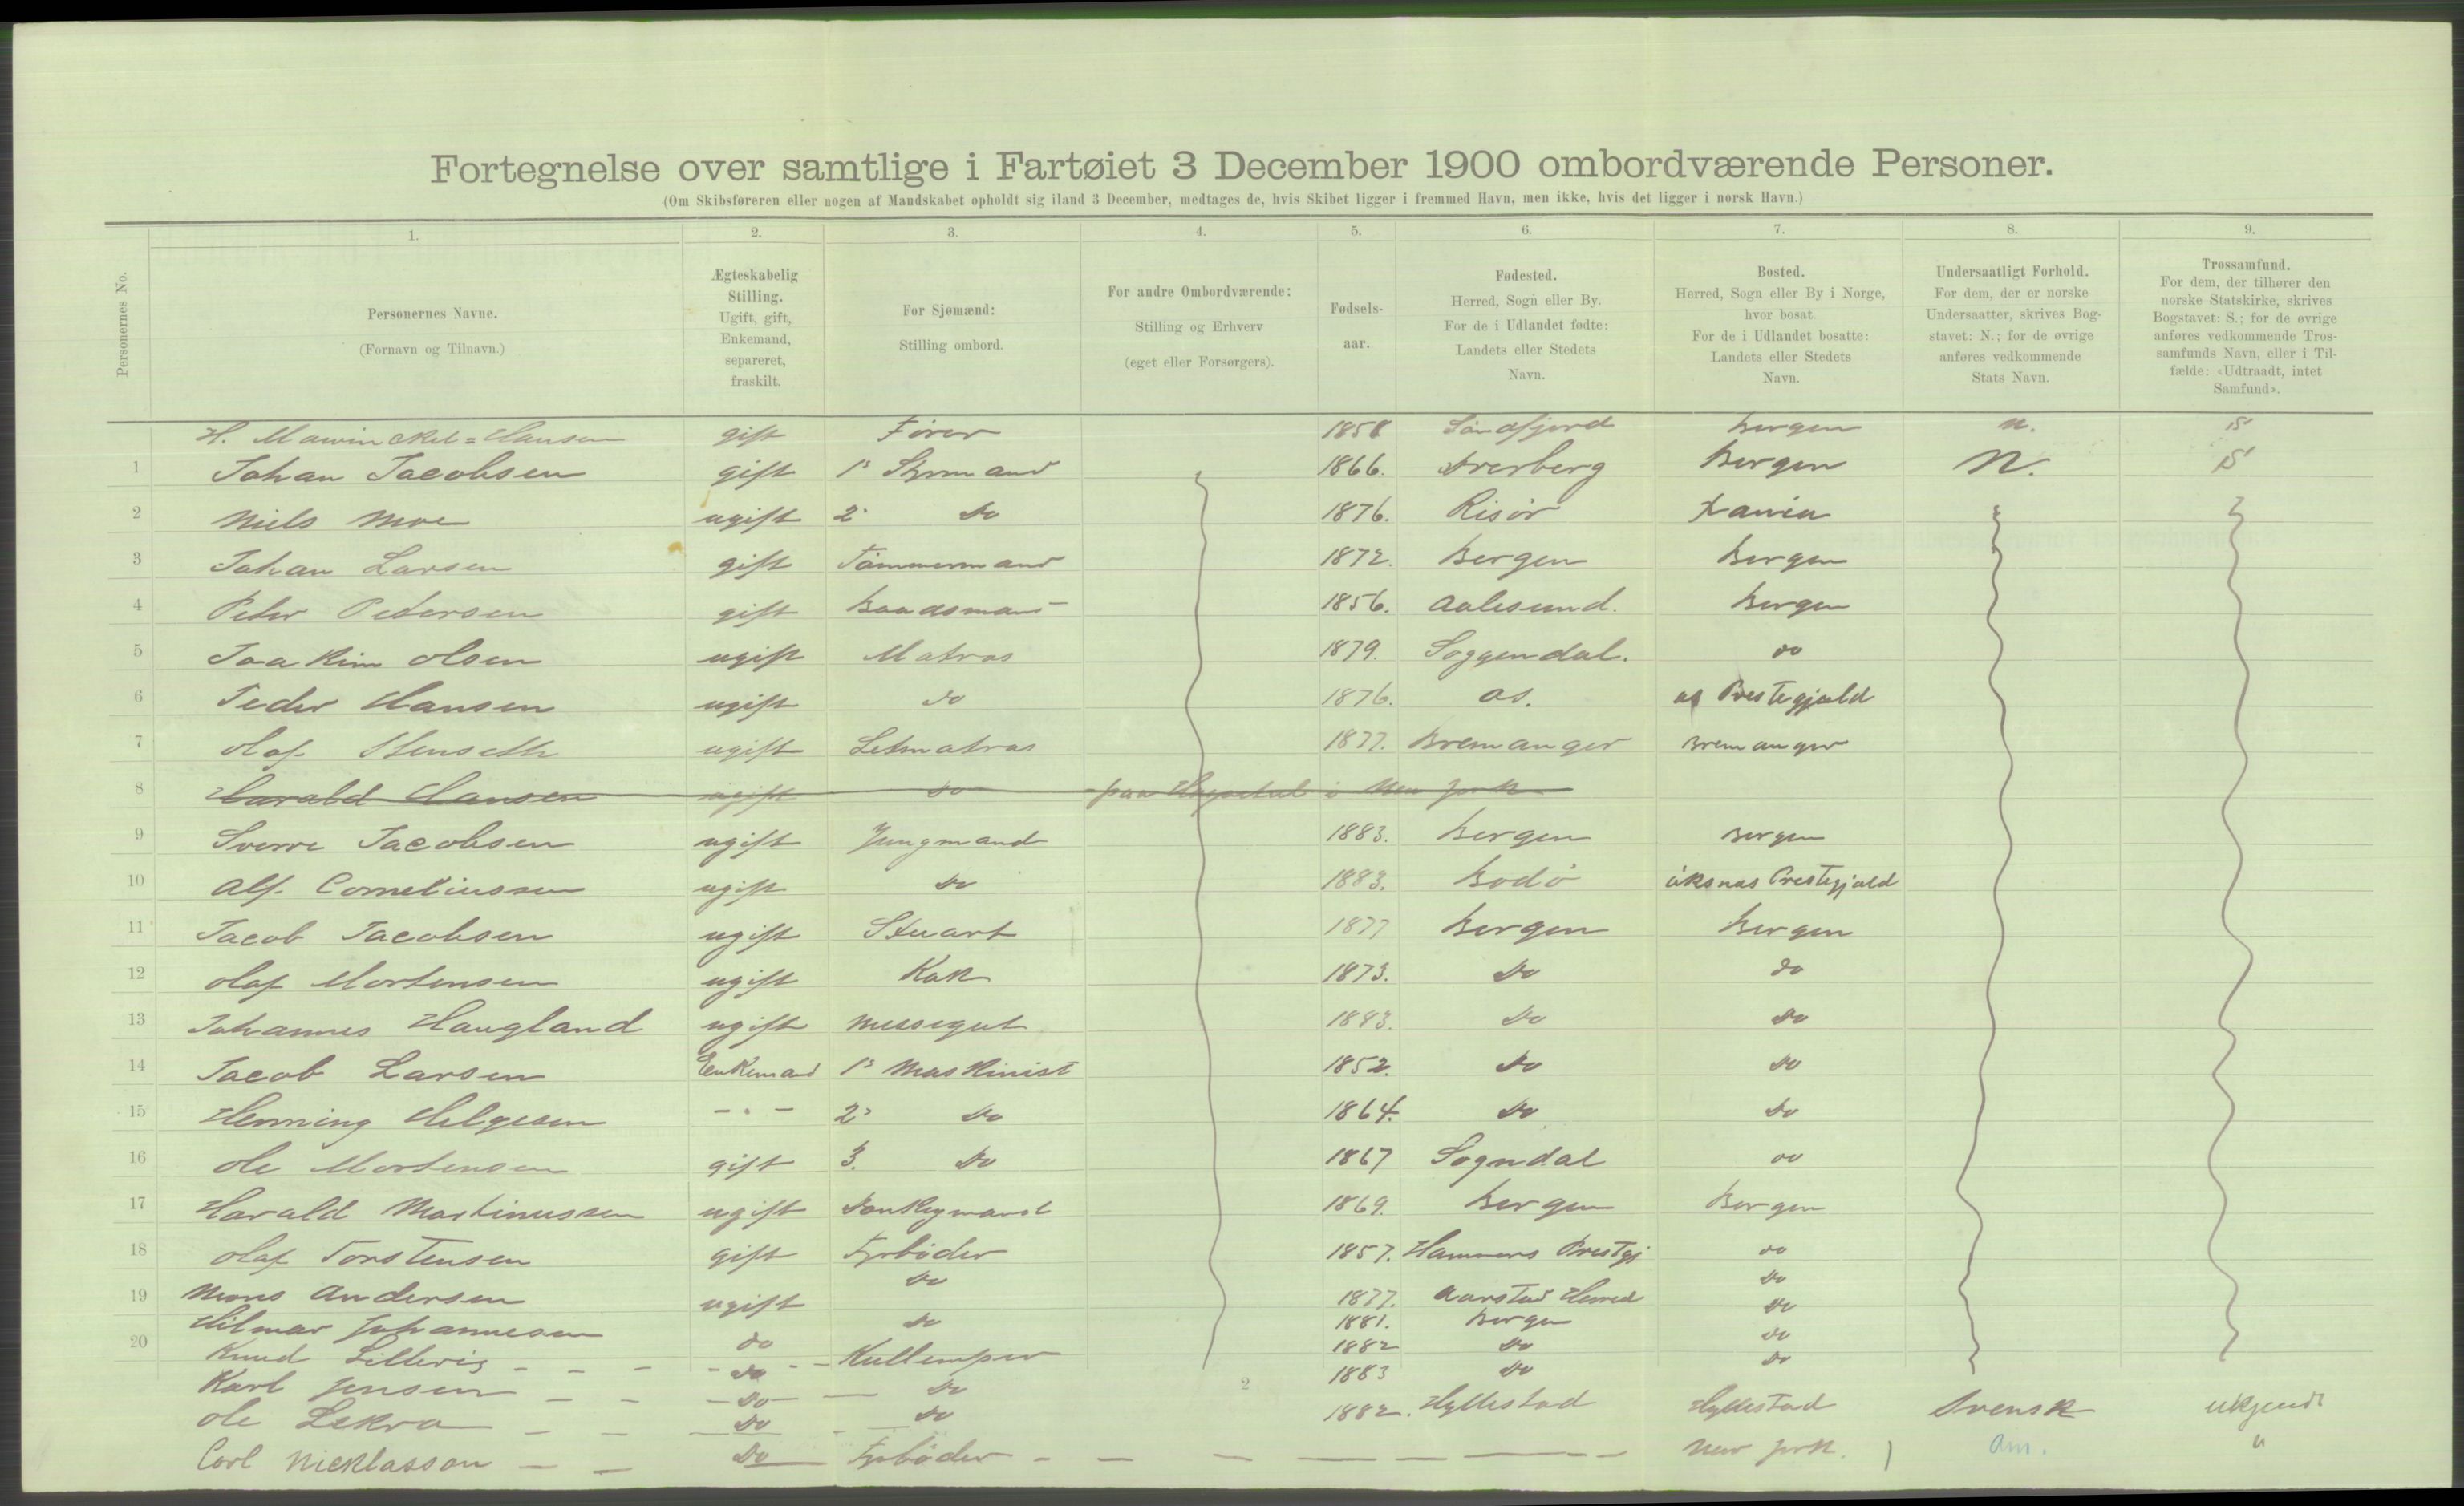 Fortegnelse over samtlige i Fartøiet 3 December 1900 ombordværende Personer.
(Om Skibsføreren eller nogen af Mandskabet opholdt sig iland 3 December, medtages de, hvis Skibet ligger i fremmed Havn, men ikke, hvis det ligger i norsk Havn.)
Personernes No.
1. Personernes Navne. (Fornavn og Tilnavn.)
2. Ægteskabelig Stilling. Ugift, gift, Enkemand, separeret, fraskilt.
3. For Sjømænd: Stilling ombord.
4. For andre Ombordværende: Stilling og Erhverv (eget eller Forsørgers).
5. Fødsels-aar.
6. Fødested. Herred, Sogn eller By. For de i Udlandet fødte: Landets eller Stedets Navn.
7. Bosted. Herred, Sogn eller By i Norge, hvor bosat. For de i Udlandet bosatte: Landets eller Stedets Navn.
8. Undersaatligt Forhold. For dem, der er norske Undersaatter, skrives Bogstavet: N.; for de øvrige anføres vedkommende Stats Navn.
9. Trossamfund. For dem, der tilhører den norske Statskirke, skrives Bogstavet: S.; for de øvrige anføres vedkommende Trossamfunds Navn, eller i Tilfælde: «Udtraadt, intet Samfund».
H. Mawinckel=Hansen gift Fører 1858 Bergen n. S
1 Johan Jacobsen gift 1s Styrmand 1866. Bergen N. S
2 Niels Moe ugift 2. Do 1876. Risör Xania
3 Johan Larsen gift Tömmermand 1872. Bergen Bergen
4 Peter Petersen gift Baadsmand 1856. Aalesund. Bergen
5 Joakim Olsen ugift Matros 1879. Soggendal. do
6 Peder Hansen ugift do 1876. as. as Prestegjald
7 Olaf Stenseth ugift Letmatros 1877. Bremanger Bremanger
8 Harald Hansen ugift do paa Hospetal i New york
9 Sverre Jacobsen ugift Jungmand 1883. Bergen Bergen
10 Alf. Corneliussen ugift Do 1883. Bodö öksnes Prestegjald
11 Jacob Jacobsen ugift Stuart 1877 Bergen Bergen
12 Olaf Mortensen ugift Kok 1873. Do do
13 Johannes Haugland ugift messegut 1883. Do Do
14 Jacob Larsen Enkemand 1s Maskinist 1852. Do Do
15 Henning Helgesen - . - 2s Do 1864. Do Do
16 Ole Mortensen gift 3. Do 1867 Sogndal do
17 Harald Martinussen ugift Donkeymand 1869. Bergen Bergen
18 Olaf Torstensen gift Fyrböder 1857. Hammers Prestgj do
19 Mons Andersen ugift Do 1877. Aarstad Herred Do
Hilmar Johannesen do Do 1881. Bergen Do
20 Knud Lillevig - - - do - - Kullemper 1882 Do do
Karl Jensen - - - Do - Do 1883 Do Do
Ole Lekva - - - Do - Do 1882. Hyllestad Hyllestad Svensk ukjendt
Carl Nicklasson - - Do Fyrböder - - - - - - - New york. am. "
2